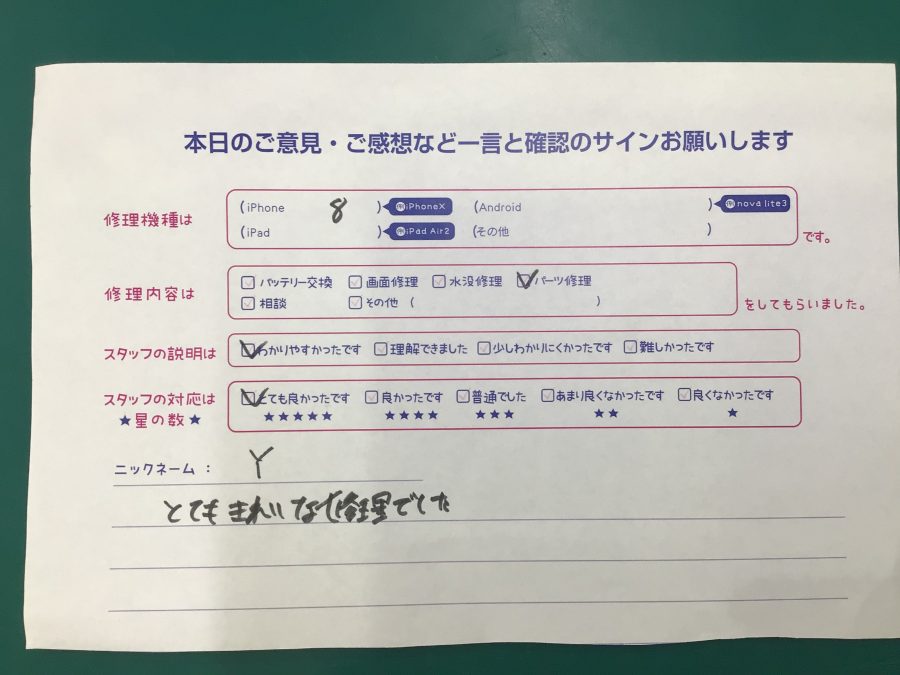 本日のご意見・ご感想など一言と確認のサインお願いします
修理機種は
(iPhone 8 ) 例iPhoneX (Android ) 例nova lite3
(iPad ) 例iPad Air2 (その他 )
です。
修理内容は
バッテリー交換 画面修理 水没修理 パーツ修理
相談 その他 ( )
をしてもらいました。
スタッフの説明は わかりやすかったです 理解できました 少しわかりにくかったです 難しかったです
スタッフの対応は とても良かったです 良かったです 普通でした あまり良くなかったです 良くなかったです
★星の数★ ★★★★★ ★★★★ ★★★ ★★ ★
ニックネーム: Y
とてもきれいな修理でした